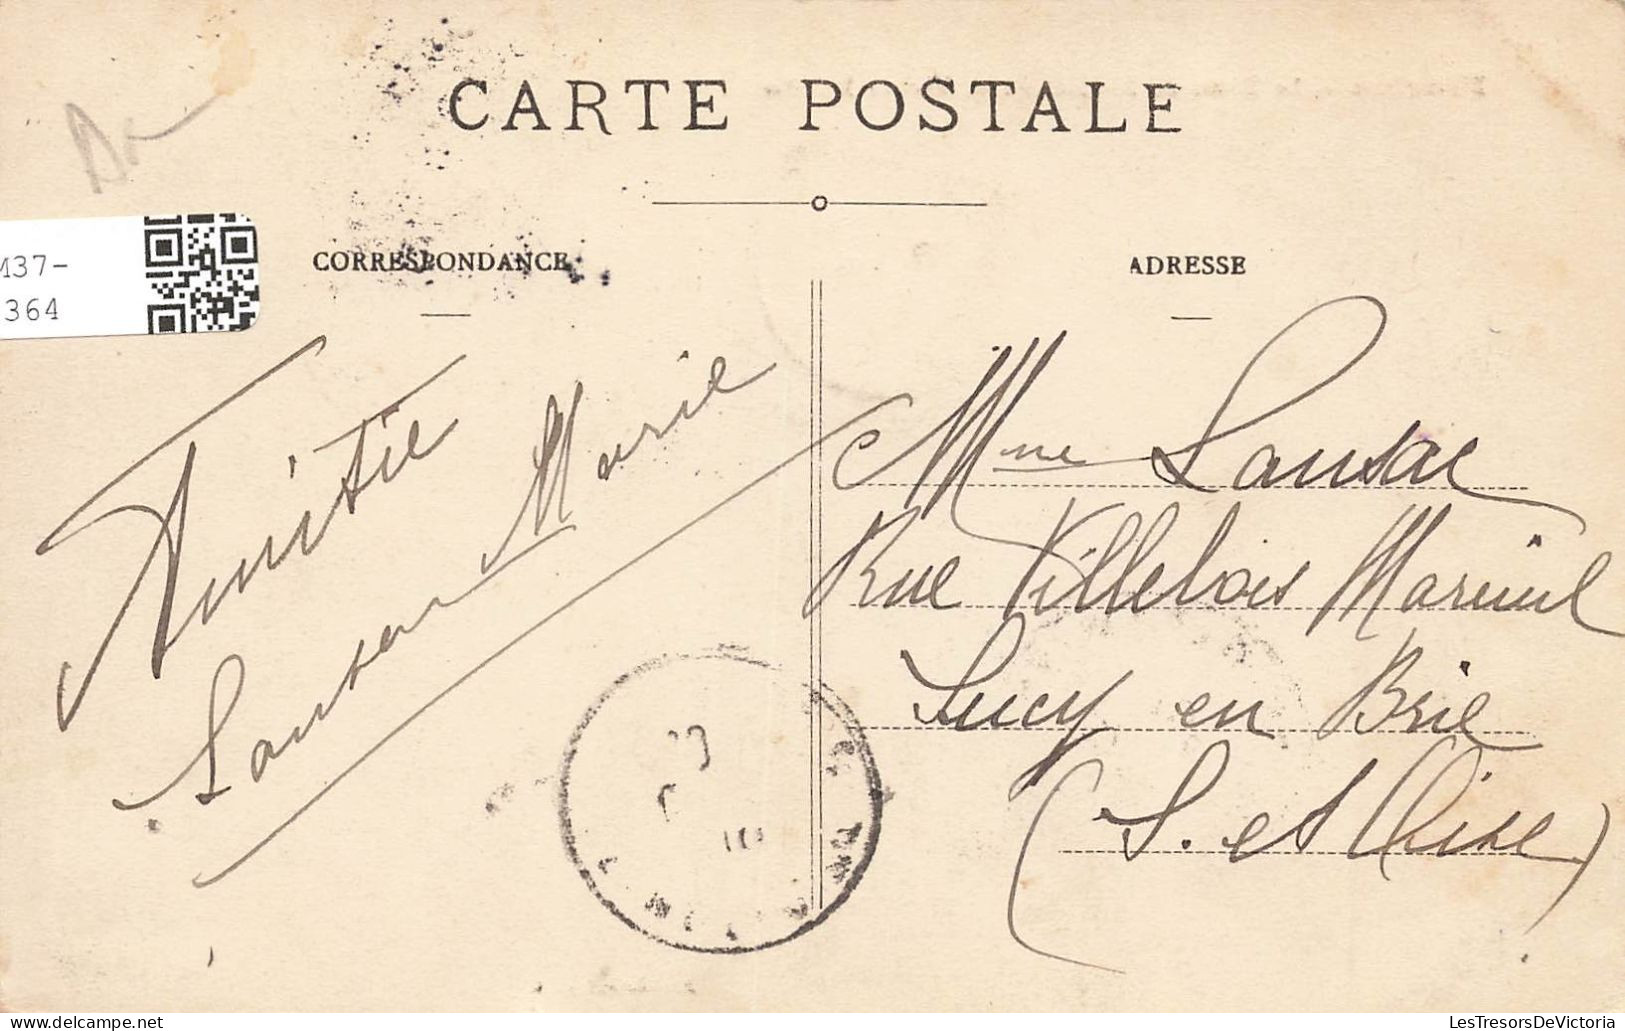 CARTE POSTALE
M37-
364
CORRESPONDANCE
ADRESSE
Amitié
Lansac Marie
Mme Lansac
Rue Villebois Mareuil
Sucy en Brie
(S. et Oise)
LesTresorsDeVictoria